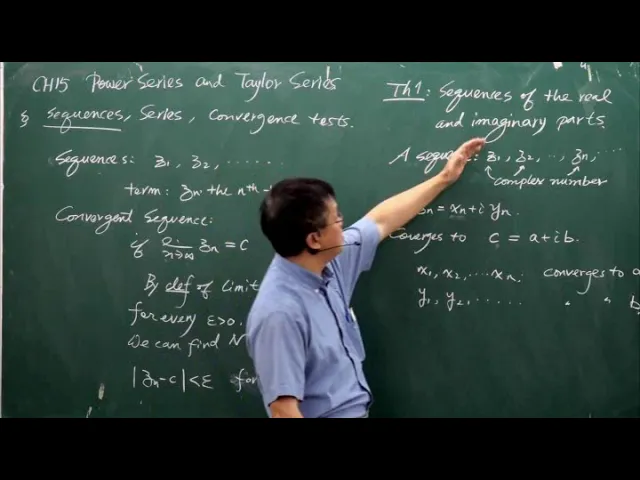 CH15 Power Series and Taylor Series
§ Sequences, Series, Convergence tests.
Sequences: z₁, z₂, ......
term: zₙ: the nᵗʰ
Convergent Sequence:
if lim n→∞ zₙ = C
By def of limit
for every ε>0.
We can find N
|zₙ-c|<ε for
Th1: Sequences of the real
and imaginary parts
A seque : z₁, z₂, .., zₙ, ...
complex number
zₙ = xₙ+i yₙ.
Coverges to c = a+ib.
x₁, x₂, ...xₙ: converges to a
y₁, y₂, ...... " " b